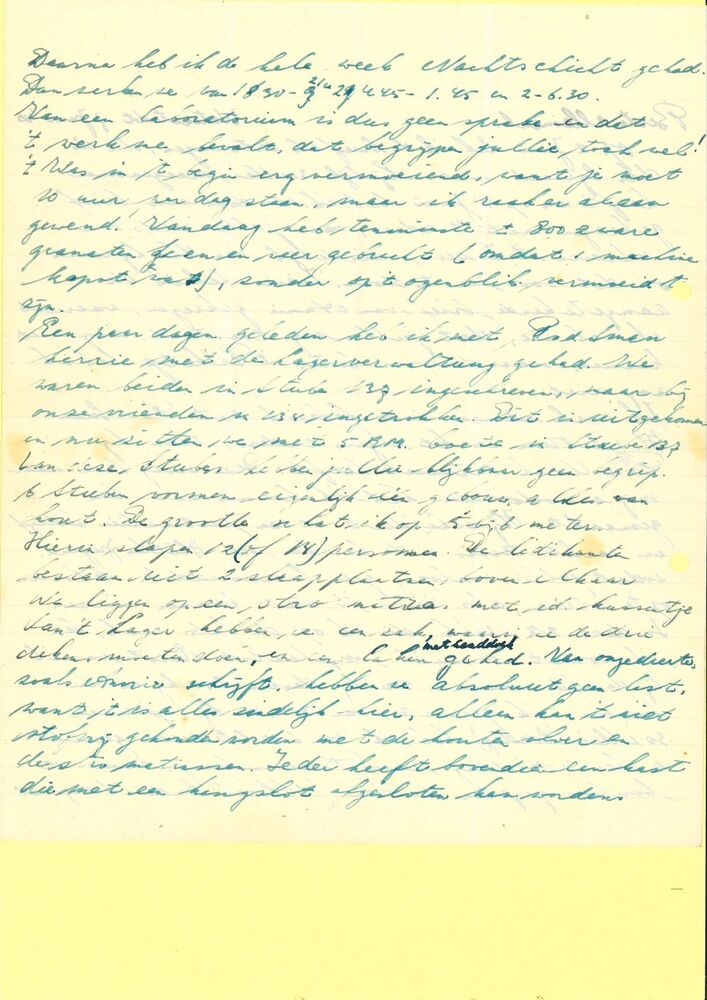 Daarna heb ik de hele week Nachtschicht gehad.
Dan werken we van 1830- 21 u 45- 1.45 en 2-6.30.
Van een laboratorium is dus geen sprake en dat
't werk me bevalt, dat begrijpen jullie toch wel!
't Was in 't begin erg vermoeiend, want je moet
10 uur per dag staan, maar ik raak er al aan
gewend. Vandaag heb tenminste ± 800 zware
granaten heen en weer gebracht (omdat 1 machine
kapot was), zonder op 't ogenblik vermoeid te
zijn.
Een paar dagen geleden heb ik met Bodsman
herrie met de Lagerverwaltung gehad. We
waren beiden in Stube 137 ingeschreven, maar bij
onze vrienden in 134 ingetrokken. Dit is uitgekomen
en nu zitten we met 5 R.M. boete in Stube 137
Van deze Stuben hebben jullie blijkbaar geen begrip.
6 Stuben vormen eigenlijk één gebouw, alles van
hout. De grootte schat ik op 5 bij 6 meter.
Hierin slapen 12 (of 18) personen. De ledikanten
bestaan uit 2 slaapplaatsen, boven elkaar
We liggen op een stro matras met id. kussentje
Van 't Lager hebben we een zak, waarin we de drie
dekens moeten doen, en een laken met handdoek gehad. Van ongedierte,
zoals schrijft, hebben we absoluut geen last,
want 't is alles zindelijk hier, alleen kan 't niet
stofvrij gehouden worden met de houten vloer en
de stro matrassen. Ieder heeft bovendien een kast
die met een hangslot afgesloten kan worden.